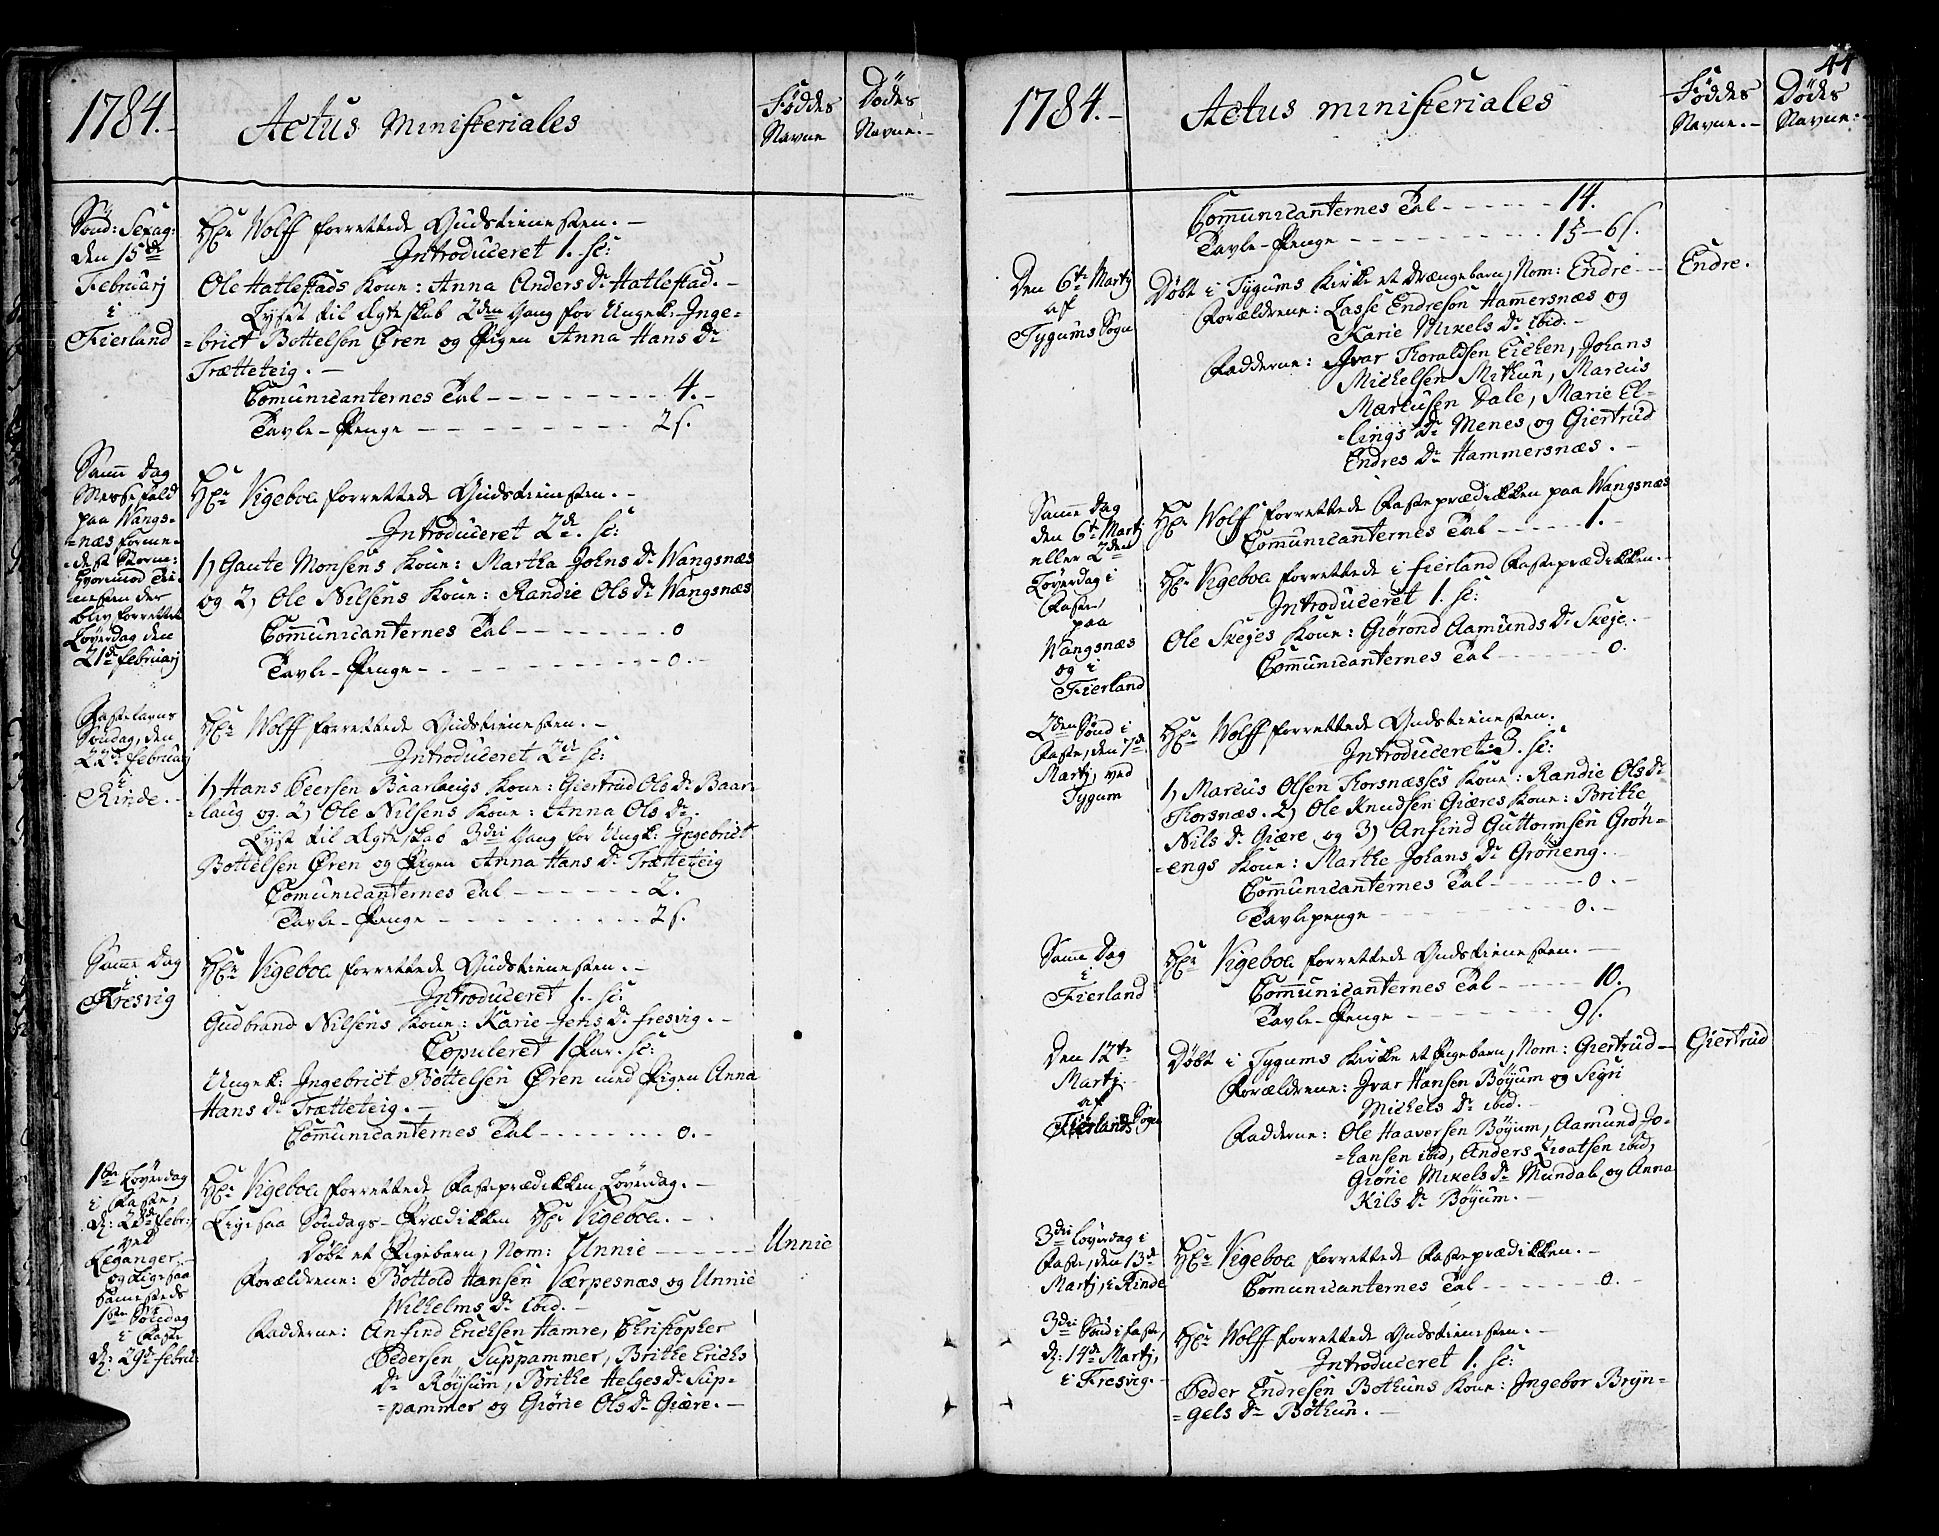 1784.
Actus Ministeriales
Føddes Navne
Dødes Navne.
Sønd: Sexag:
den 15de
Februarj
i
Fierland
Hr. Wolff forrettede Gudstienesten.
Introduceret 1. sc:
Ole Hatlestads Kone: Anna Anders Dr Hatlestad.
Lyst til Ægteskab 2den Gang for Ungk: Inge-
=brict Bottelsen Øren og Pigen Anna Hans Dr
Trætteteig.
Com̄unicanternes Tal - - - - 4.
Tavle-Penge - - - - 2 s.
Sam̄e Dag
Messefald
paa Wangs-
=næs forme-
=delst Storm:
hvorimod Tie-
nesten der
blev forrettet
Løverdag den
21de februarj
Hr. Vigeboe forrettede Gudstienesten.
Introduceret 2de. sc:
1, Gaute Monsens Kone: Martha Johns Dr Wangsnæs
og 2, Ole Nilsens Kone: Randie Ols Dr Wangsnæs
Com̄unicanternes Tal - - - - 0
Tavle-Penge - - - - 0.
Fastelavns
Søndag, den
22de februarj
i
Rinde.
Hr. Wolff forrettede Gudstienesten.
Introduceret 2de sc:
1, Hans Peersen Baarlougs Kone: Giertrud Ols Dr Baar-
=laug og 2, Ole Nilsens Kone: Anna Ols Dr.
Lyst til Ægteskab 3die Gang for Ungk: Ingebrict
Bottelsen Øren og Pigen Anna Hans Dr Trætteteig
Com̄unicanternes Tal - - - - 2.
Tavle-Penge - - - - 2 s.
Sam̄e Dag
i
Fresvig
Hr. Vigeboe forrettede Gudstienesten.
Introduceret 1. sc:
Gudbrand Nilsens Kone: Karie Jens Dr Fresvig.
Copuleret 1 Par. sc:
Ungk: Ingebrict Bottelsen Øren med Pigen Anna
Hans Dr Trætteteig.
Com̄unicanternes Tal - - - - 0.
1ste Løverdag
i Faste,
d: 28de febr:
ved
Leganger,
og Ligesaa
Sam̄esteds
1ste Søndag
i Faste
d: 29de febru:
Hr. Vigeboe forrettede Fasteprædikken Løverdag.
Ligesaa Søndags-Prædikken Hr. Vigeboe.
Døbt et Pigebarn, Nom: Unnie - - - Unnie
Forældrene: Bottold Hansen Værpesnæs og Unnie
Wilhelms Dr ibid.
Fadderne: Anfind Erichsen Hamre, Christopher
Pedersen Suppammer, Brithe Erichs
Dr Røysum, Brithe Helges Dr Sup-
=pammer og Giørie Ols Dr Giære.
44
1784.
Actus ministeriales
Føddes Navne.
Dødes Navne.
Com̄unicanternes Tal - - - 14.
Tavle-Penge - - - 15-6 s.
Den 6te Martj
af
Tygums Sogn
Døbt i Tygums Kirke et Drængebarn, Nom: Endre - - Endre.
Forældrene: Lasse Endresøn Ham̄ersnæs og
Karie Mikels Dr ibid.
Fadderne: Ivar Thoraldsen Eichen, Johans
Michelsen Mithun, Marcus
Marcusen Dale, Marie El-
=lings Dr Menes og Giertrud
Endres Dr Hammersnæs.
Sam̄e Dag
den 6te Martj
eller 2den
Løverdag i
Faste,
paa
Wangsnæs
og i
Fierland
Hr. Wolff forrettede Fasteprædikken paa Wangsnæs
Com̄unicanternes Tal - - - 1.
Hr. Vigeboe forrettede i Fierland Fasteprædikken.
Introduceret 1. sc:
Ole Skejes Kone: Giørond Aamunds Dr Skeje.
Com̄unicanternes Tal - - - 0.
2den Sønd i
Faste, den 7de
Martj, ved
Tygum
Hr. Wolff forrettede Gudstienesten.
Introduceret 3. sc:
1, Marcus Olsen Thorsnæsses Kone: Randie Ols Dr
Thorsnæs. 2, Ole Knudsen Giæres Kone: Brithe
Nils Dr Giære og 3, Anfind Guttormsen Grøn-
=engs Kone: Marthe Johans Dr Grøneng.
Com̄unicanternes Tal - - - 0.
Tavlepenge - - - 0.
Sam̄e Dag
i
Fierland
Hr. Vigeboe forrettede Gudstienesten.
Com̄unicanternes Tal - - - 10.
Tavle-Penge - - - 9 s.
Den 12te
Martj
af
Fierlands Sogn
Døbt i Tygums Kirke et Pigebarn, Nom: Giertrud - Giertrud
Forældrene: Ivar Hansen Bøyum og Segri
Michels Dr ibid.
Fadderne: Ole Haaversen Bøyum, Aamund Jo-
=hansen ibid, Anders ibid,
Giørie Mikels Dr Mundal og Anna
Kils Dr Bøyum.
3die Løverdag i
Faste, den 13de
Martj, i Rinde
Hr. Vigeboe forrettede Fasteprædikken.
Com̄unicanternes Tal - - - 0.
3die Sønd i faste,
d: 14de Martj,
i Fresvig.
Hr. Wolff forrettede Gudstienesten.
Introduceret 1. sc:
Peder Endresen Bothuns Kone: Ingebor Bryn-
=gels Dr Bothun.